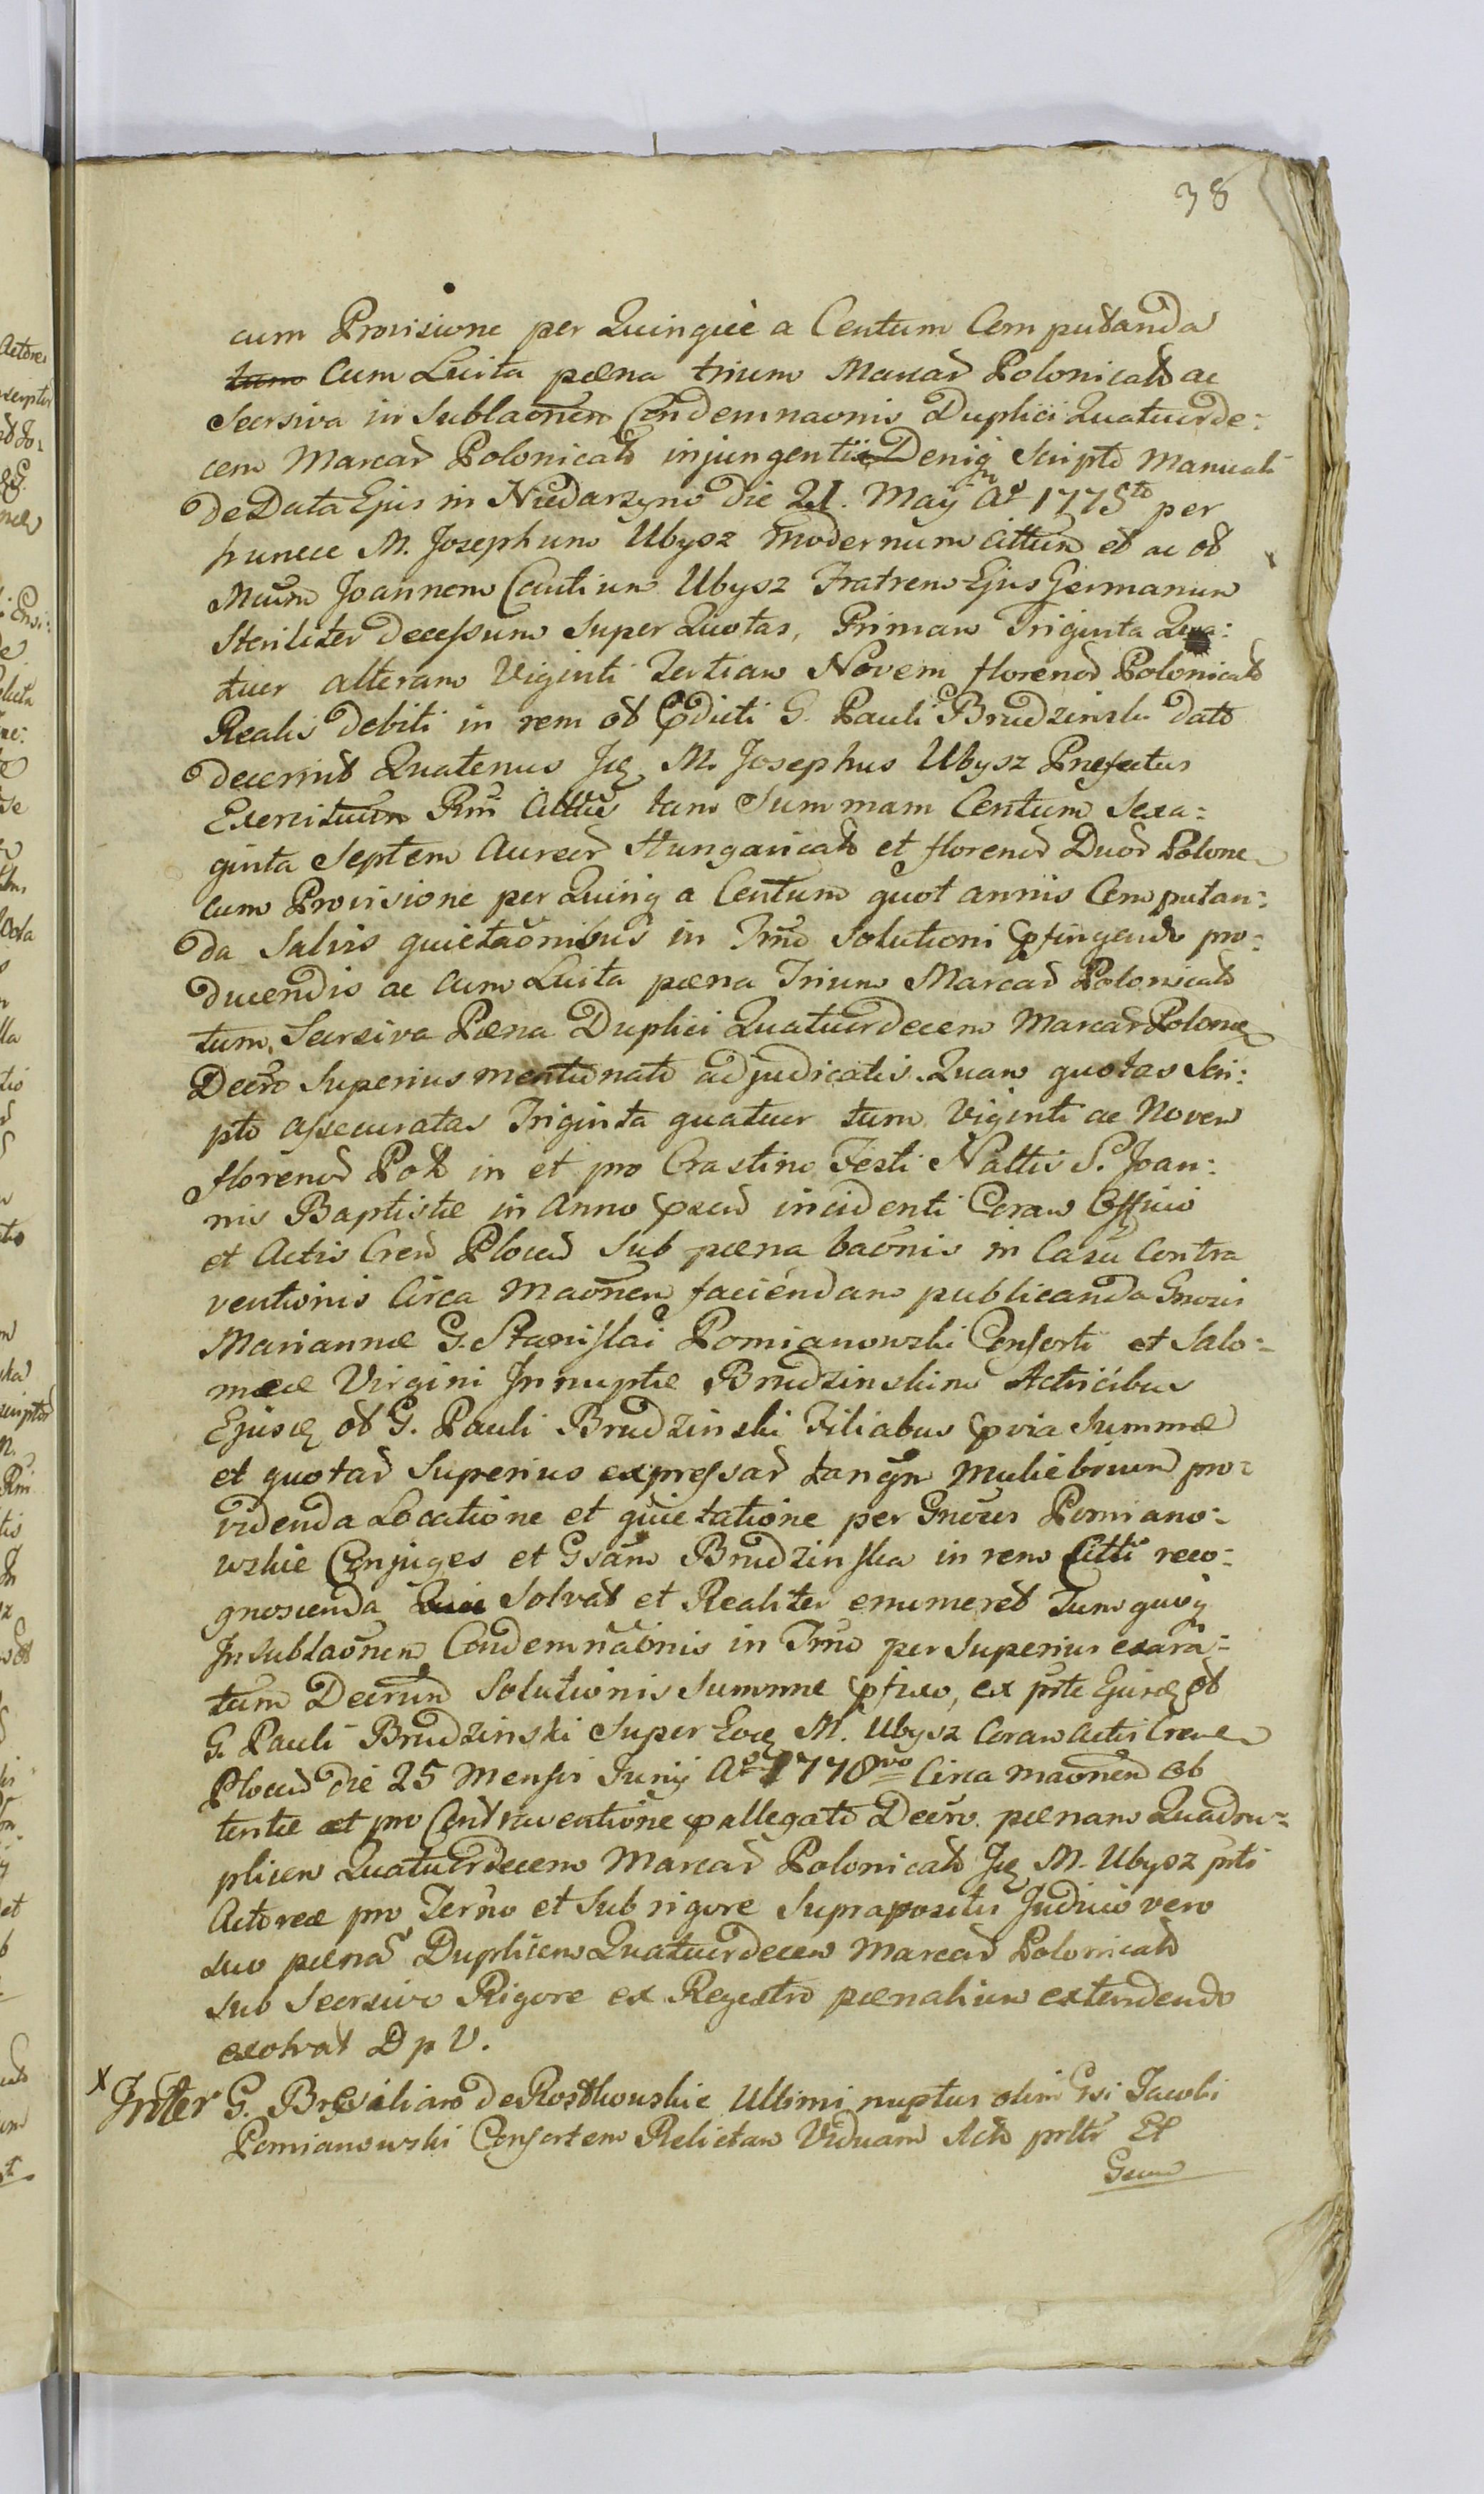 38
cum Provisione per Quinque a Centum Computanda
tum Cum Luita pœna trium Marcar Polonicals ac
Seorsiva in Sublaõnem Condemnaõnis Duplici Quatuorde:
cem Marcar Polonicals injungentis Deniq Scripto Manuali
de Data Ejus in Niedarzyno die 21. Maÿ Aº 1775to per
huncce M. Josephum Ubysz modernum Cittum et ac ol
Mcum Joannem Cantium Ubysz Fratrem Ejus Germanum
Steriliter decessum Super Quotas, Primam Triginta Qua:
tuor alteram Viginti Tertiam Novem florenor Polonicals
Realis debiti in rem ol Pdicti G. Pauli Brudzinski dato
decernit Quatenus Jq M. Josephus Ubysz Prefectus
Exercituum Rni Cittus tam Summam Centum Sexa:
ginta Septem Aureor Hungaricals et florenor Duor Polone
cum Provisione per Quinq a Centum quot annis Computan:
da Salvis quietaõnibus in Trno Solutioni pfingendo pro:
ducendis ac cum Luita pœna Trium Marcar Polonicals
tum Seorsiva Pœna Duplici Quatuordecem Marcar Polone
Decro Superius mentionato adjudicatis. Quam quotas Scri:
pto assecuratas Triginta quatuor tum Viginti ac Novem
florenor Pol in et pro Crastino Festi Nattis S. Joan:
nis Baptistæ in Anno pnti incidenti Coram Officio
et Actis Cren Plocen Sub pœna baõnis in Casu Contra
ventionis Circa Maõnem faciendam publicanda Gnosis
Mariannæ G. Stanislai Pomianowski Consorti et Salo:
meæ Virgini Innuptæ Brudzinskim Actricibus
Ejusq ol G. Pauli Brudzinski Filiabus pvia Summæ
et quotar Superius expressar tanqm muliebrium pro:
videnda Locatione et quietatione per Gnoses Pomiano:
wskie Conjuges et Gsam Brudzinska in rem Citti reco:
gnoscenda Solvat et Realiter enumeret tum quoq
In sublaõnem Condemnaõnis in Trno per Superius exara:
tum Decrum Solutionis Summæ pfixo, ex pte Ejusq ol
G. Pauli Brudzinski Super Eoq M. Ubysz Coram Actis Crene
Plocen die 25 Mensis Junij Aº 1778vo Circa maõnem Ob
tentæ et pro Contraventione pallegato Decro pœnam Quadru:
plicem Quatuordecem Marcar Polonicals Jq M. Ubysz pti
Actoreæ pro Terno et Sub rigore Supraposito Judicio vero
suo pœnam Duplicem Quatuordecem Marcar Polonicals
sub Seorsivo Rigore ex Regestro pœnalium extendendo
exolvat D p V.
x Inter G. Bresilianam de Rostkowskie Ultimi nuptus olim Gsi Jacobi
Pomianowski Consortem Relictam Viduam Acto prltr Et
Gsum